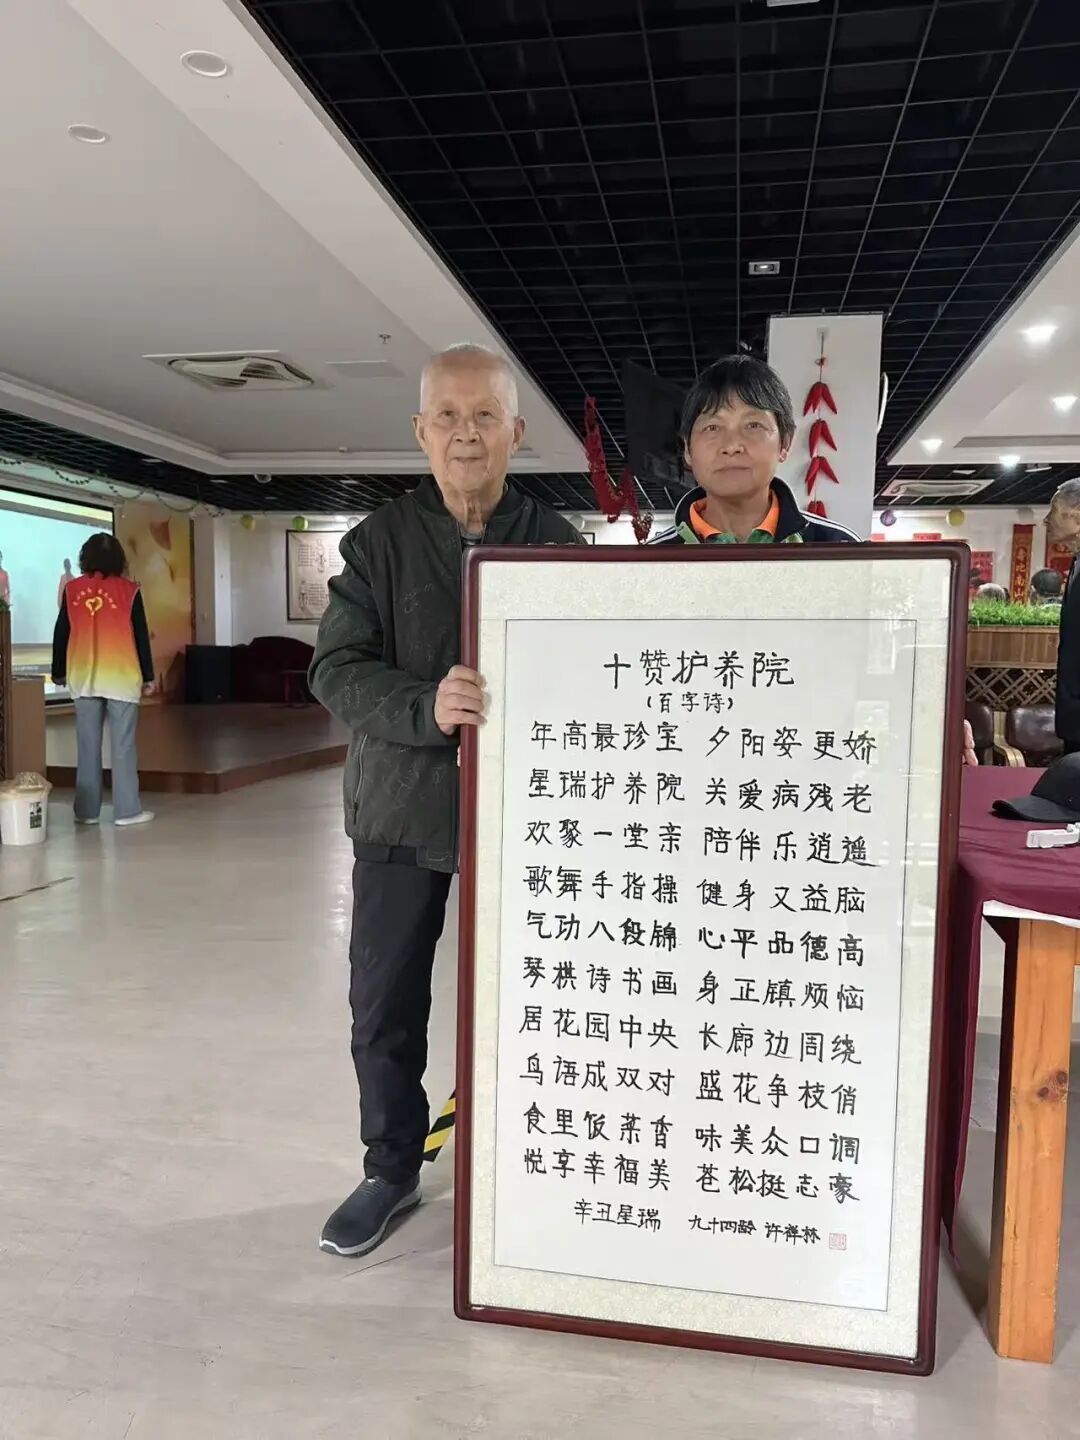 十赞护养院
(百字诗)
年高最珍宝 夕阳姿更娇
星瑞护养院 关爱病残老
欢聚一堂亲 陪伴乐逍遥
歌舞手指操 健身又益脑
气功八段锦 心平品德高
琴棋诗书画 身正镇烦恼
居花园中央 长廊边周绕
鸟语成双对 盛花争枝俏
食里饭菜香 味美众口调
悦享幸福美 苍松挺志豪
辛丑星瑞 九十四龄 许祥林